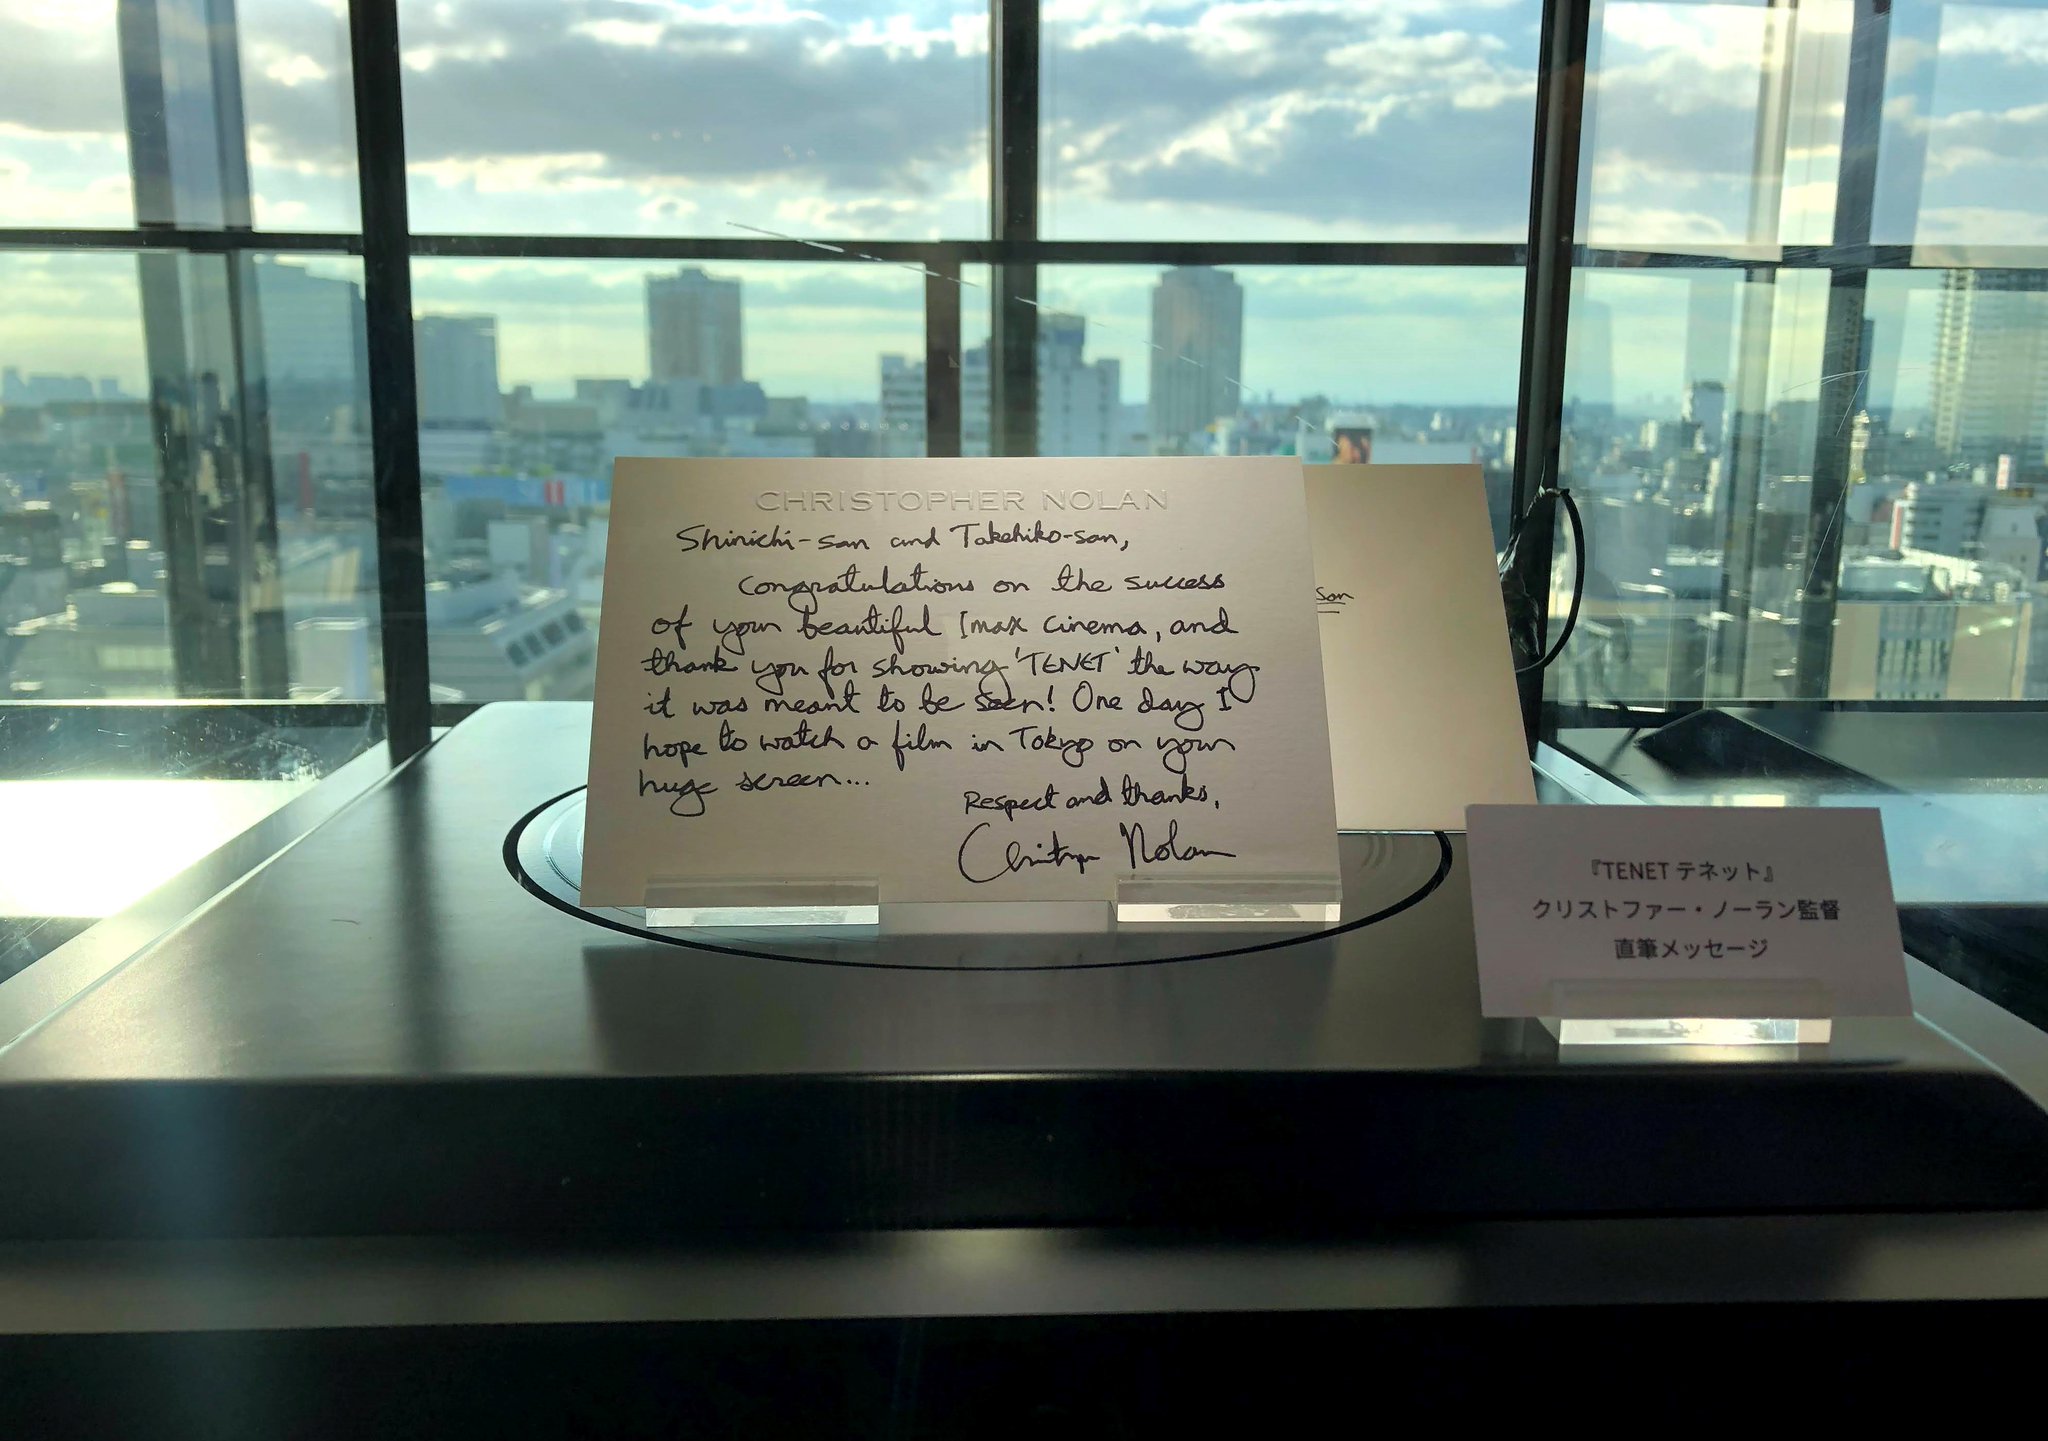 CHRISTOPHER NOLAN
Shinichi-san and Takehiko-san,
Congratulations on the success
of your beautiful Imax cinema, and
thank you for showing 'TENET' the way
it was meant to be seen! One day I
hope to watch a film in Tokyo on your
huge screen...
Respect and thanks,
Christopher Nolan
san
『TENET テネット』
クリストファー・ノーラン監督
直筆メッセージ